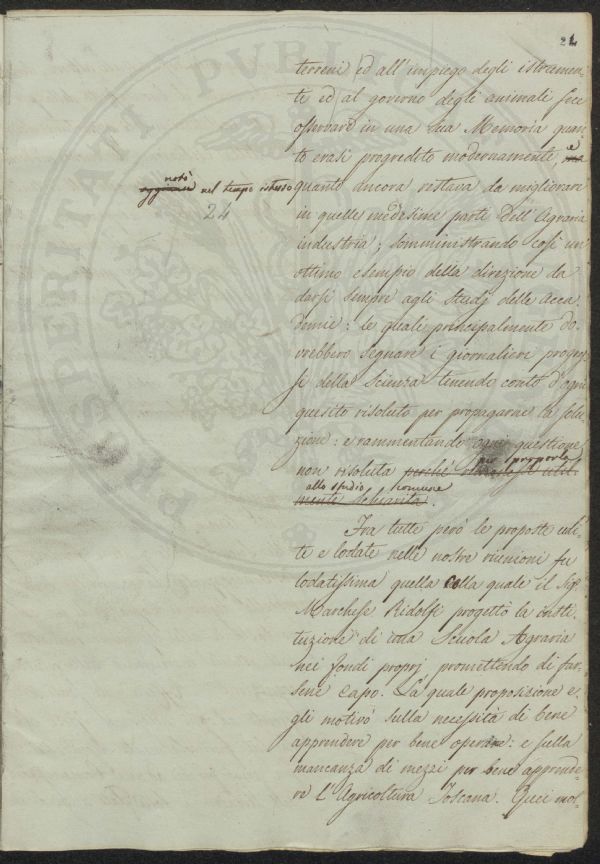 21
terreni ed all'impiego degli istromen-
ti ed al governo degli animali fece
osservare in una sua Memoria quan-
to erasi progredito modernamente, e
notò
nel tempo istesso quanto ancora restava da migliorare
24
in quelle medesime parti dell'Agraria
industria; somministrando così un
ottimo esempio della direzione da
darsi sempre agli Studj delle Acca-
demie: le quali principalmente do-
vrebbero segnare i giornalieri progres-
si della Scienza tenendo conto d'ogni
quesito risoluto per propagarne la solu-
zione: e rammentando ogni questione
non risoluta perché
per proporla
allo studio comune
mente schiarita.
Fra tutte però le proposte udi-
te e lodate nelle nostre riunioni fu
lodatissima quella colla quale il Sigr.
Marchese Ridolfi progettò la insti-
tuzione di una Scuola Agraria
nei fondi proprj promettendo di far-
sene capo. La quale proposizione e-
gli motivò sulla necessità di bene
apprendere per bene operare: e sulla
mancanza di mezzi per bene apprende-
re l'Agricoltura Toscana. Quei mol-
PROSPERITATI PUBLICAE